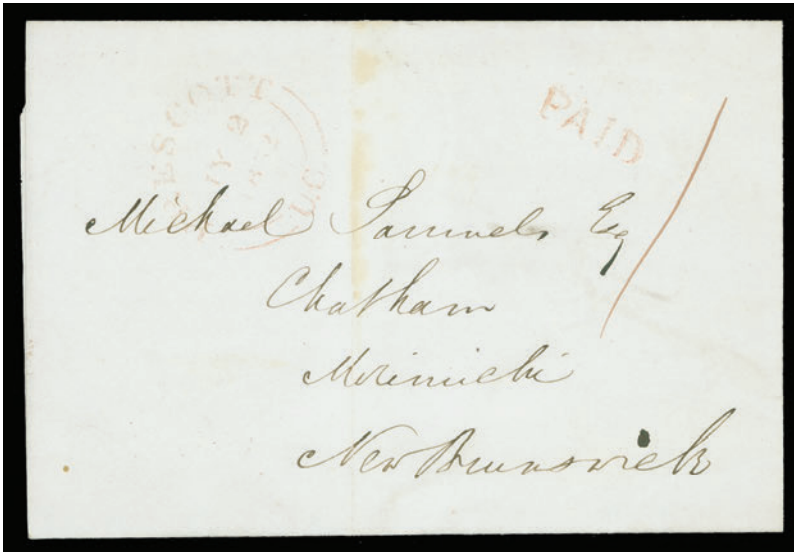 PRESCOTT
PAID
U.C.
Michael Samuels Esq
Chatham
Mirimichi
New Brunswick